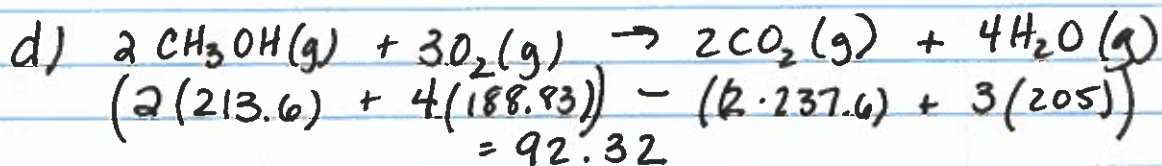 d) 2 CH₃OH(g) + 3O₂(g) → 2CO₂(g) + 4H₂O(g)
(2(213.6) + 4(188.83)) - (2·237.6) + 3(205))
= 92.32